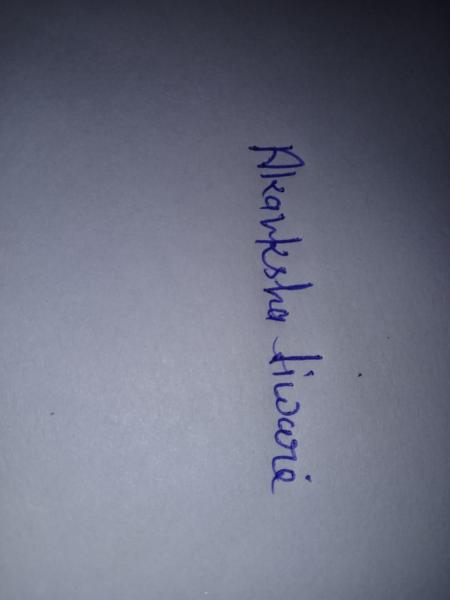 Akanksha tiwari